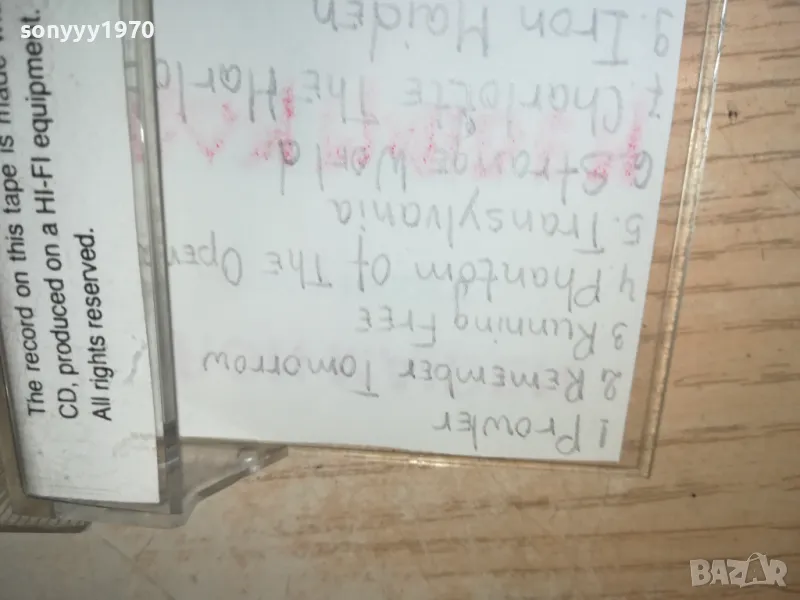 sonyyy1970
The record on this tape is made
CD, produced on a HI-FI equipment.
All rights reserved.
1 Prowler
2 REMEMBER TOMORROW
3 Running FREE
4 Phantom Of The Oper
5. Transylvania
6. Strange World
7. Charlotte The Harlo
9. Iron Maiden
BAZAR